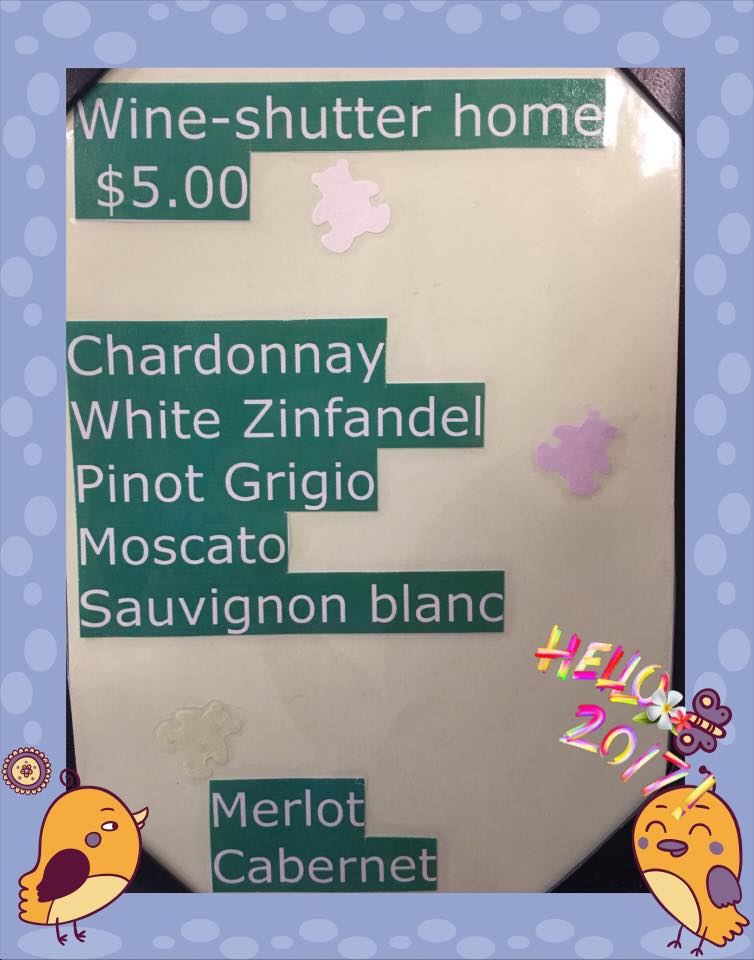 Wine-shutter home
$5.00
Chardonnay
White Zinfandel
Pinot Grigio
Moscato
Sauvignon blanc
HELLO
2017!
Merlot
Cabernet